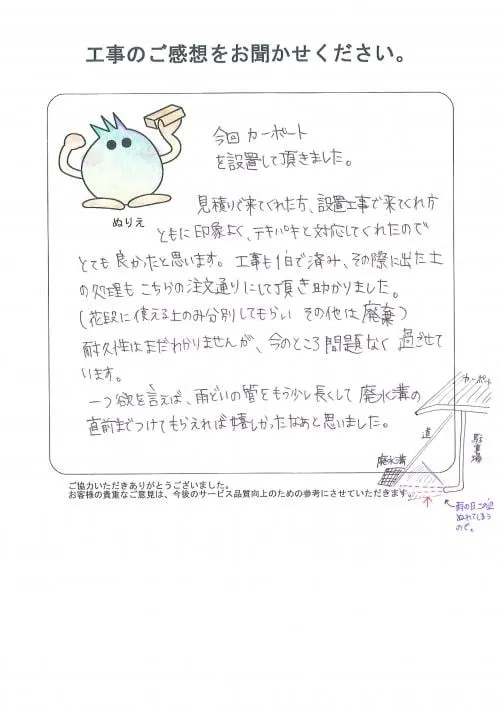 工事のご感想をお聞かせください。
今回 カーポート
を設置して頂きました。
ぬりえ
見積りで来てくれた方、設置工事で来てくれ方
ともに印象よく、テキパキと対応してくれたので
とても良かったと思います。工事も1日で済み、その際に出た土
の処理もこちらの注文通りにして頂き助かりました。
(花段に使える土のみ分別してもらい その他は廃棄)
耐久性はまだわかりませんが、今のところ問題なく過ごせて
います。
一つ欲を言えば、雨どいの管をもう少し長くして廃水溝の
直前までつけてもらえれば嬉しかったなあと思いました。
カーポート
道
駐車場
廃水溝
雨の日この辺
ぬれてしまう
ので。
ご協力いただきありがとうございました。
お客様の貴重なご意見は、今後のサービス品質向上のための参考にさせていただきます。